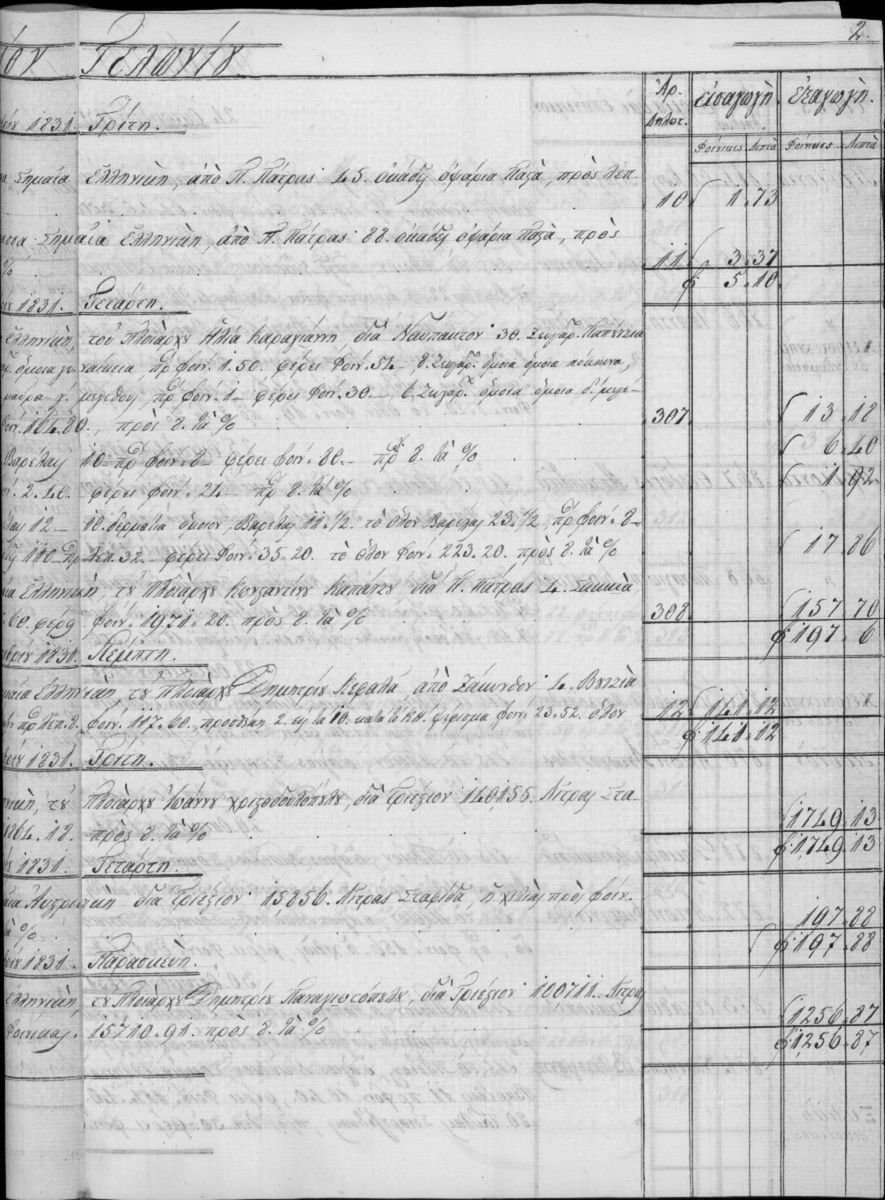 2.
ὸν Τελωνίυ.
Ἀρ. Δηλωτ. εἰσαγωγὴ. ἐξαγωγὴ.
Φοίνικες. Λεπτὰ Φοίνικες. Λεπτὰ
1831. Τρίτη.
Σημαία Ἑλληνικὴ, ἀπὸ Π. Πάτρας 45. ὀκάδες ὀψάρια παξὰ, πρὸς λεπ-
10 1.73
Σημαία Ἑλληνικὴ, ἀπὸ Π. Πάτρας 88. ὀκάδες ὀψάρια παξὰ, πρὸς
% 11 3.37
φ 5.10.
1831. Τετάρτη.
Ἑλληνικὴ, τοῦ Πλοιάρχου Ἠλία Καραγιάννη, διὰ Ναύπακτον 30. ζευγάρ.
ὅμοια γυναίκεια πρ φοιν. 1.50. φέρει φοιν. 51 – 8. ζευγάρ. ὅμοια ὅμοια κόκκινα,
μαύρα γ. μεγέθους, πρ φοιν. 1 – φέρει φοιν. 30. – 6. ζευγάρ. ὅμοια ὅμοια δ. μεγέ-
φοιν. 164.80., πρὸς 8. τὰ % 307. 13.18
6.40
Βαρέλας 10 πρ φοιν. 8 – φέρει φοιν. 80. – πρ 8. τὰ % 1.92
2.40. φέρει φοιν. 21. – πρ 8. τὰ %
12. – 10. δερμάτια ὅμοιον Βαρέλας 11.½. τὸ ὅλον Βαρέλας 23.½. πρ φοιν. 8 –
110 – πρ λεπ. 32. – φέρει φοιν. 35.20. τὸ ὅλον φοιν. 223.20. πρὸς 8. τὰ % 17.86
Ἑλληνικὴ, τȣ Πλοιάρχου Κωνσταντίνου Καπάτου διὰ Π. Πάτρας 4. Σακκιὰ
60. φέρει φοιν. 1971.20. πρὸς 8. τὰ % 308. 157.70
φ 197.6
1831. Πέμπτη.
Σημαία Ἑλληνικὴ, τȣ Πλοιάρχου Δημητρίου Κεφαλᾶ, ἀπὸ Ζάκυνθον 4. Βυτζία
πρ λεπ. 8. φοιν. 117.60., προσθήκη 2. εἰς τὰ 10. κατὰ τὸ φοιν. 23.52. ὅλον 12 141.12
φ 141.12
1831. Τρίτη.
τȣ Πλοιάρχου Ἰωάννου Χριστοδουλόπουλου, διὰ Τριέστιον 140155. Λίτρας Στα-
1864.18. πρὸς 8. τὰ % 1749.13
φ 1749.13
1831. Τετάρτη.
Αὐστριακὴ διὰ Τριέστιον 15856. Λίτρας Σταφίδα, ἡ χιλιὰς πρὸς φοιν.
τὰ % 197.88
φ 197.88
1831. Παρασκευὴ.
Ἑλληνικὴ, τȣ Πλοιάρχου Δημητρίου Παναγιωτόπουλου, διὰ Τριέστιον 100711. Λίτρας
Φοίνικας. 15710.91. πρὸς 8. τὰ % 1256.87
φ 1256.87